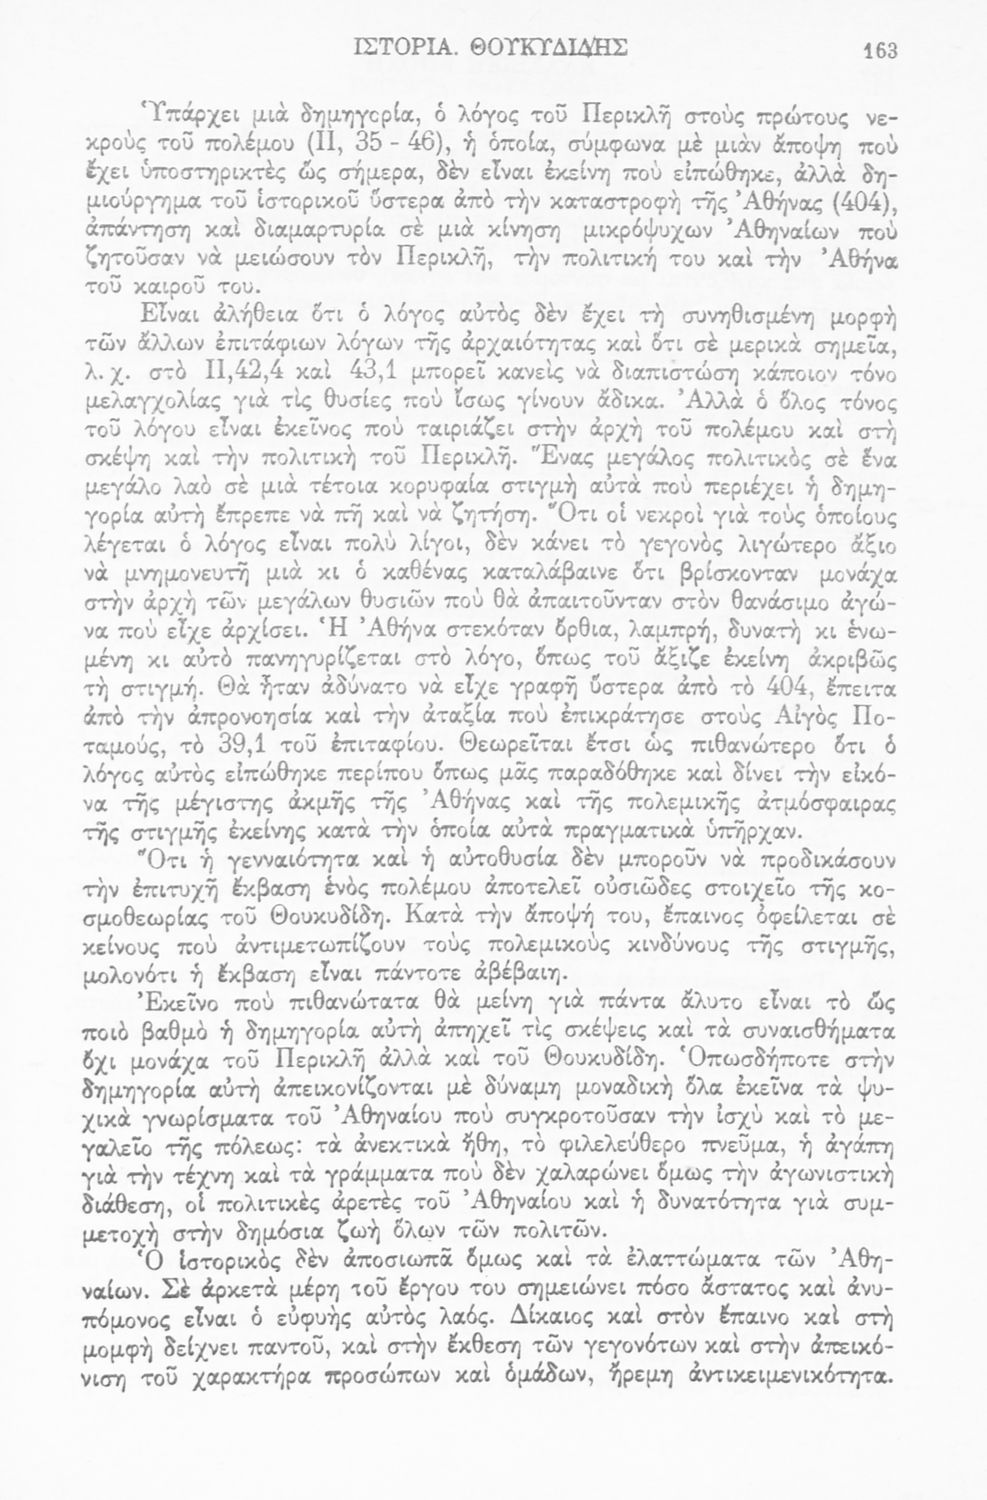 ΙΣΤΟΡΙΑ. ΘΟΥΚΥΔΙΔΗΣ 163
Ὑπάρχει μιὰ δημηγορία, ὁ λόγος τοῦ Περικλῆ στοὺς πρώτους νε-
κροὺς τοῦ πολέμου (ΙΙ, 35 - 46), ἡ ὁποία, σύμφωνα μὲ μιὰν ἄποψη ποὺ
ἔχει ὑποστηρικτὲς ὣς σήμερα, δὲν εἶναι ἐκείνη ποὺ εἰπώθηκε, ἀλλὰ δη-
μιούργημα τοῦ ἱστορικοῦ ὕστερα ἀπὸ τὴν καταστροφὴ τῆς Ἀθήνας (404),
ἀπάντηση καὶ διαμαρτυρία σὲ μιὰ κίνηση μικρόψυχων Ἀθηναίων ποὺ
ζητοῦσαν νὰ μειώσουν τὸν Περικλῆ, τὴν πολιτική του καὶ τὴν Ἀθήνα
τοῦ καιροῦ του.
Εἶναι ἀλήθεια ὅτι ὁ λόγος αὐτὸς δὲν ἔχει τὴ συνηθισμένη μορφὴ
τῶν ἄλλων ἐπιτάφιων λόγων τῆς ἀρχαιότητας καὶ ὅτι σὲ μερικὰ σημεῖα,
λ. χ. στὸ ΙΙ,42,4 καὶ 43,1 μπορεῖ κανεὶς νὰ διαπιστώση κάποιον τόνο
μελαγχολίας γιὰ τὶς θυσίες ποὺ ἴσως γίνουν ἄδικα. Ἀλλὰ ὁ ὅλος τόνος
τοῦ λόγου εἶναι ἐκεῖνος ποὺ ταιριάζει στὴν ἀρχὴ τοῦ πολέμου καὶ στὴ
σκέψη καὶ τὴν πολιτικὴ τοῦ Περικλῆ. Ἕνας μεγάλος πολιτικὸς σὲ ἕνα
μεγάλο λαὸ σὲ μιὰ τέτοια κορυφαία στιγμὴ αὐτὰ ποὺ περιέχει ἡ δημη-
γορία αὐτὴ ἔπρεπε νὰ πῆ καὶ νὰ ζητήση. Ὅτι οἱ νεκροὶ γιὰ τοὺς ὁποίους
λέγεται ὁ λόγος εἶναι πολὺ λίγοι, δὲν κάνει τὸ γεγονὸς λιγώτερο ἄξιο
νὰ μνημονευτῆ μιὰ κι ὁ καθένας καταλάβαινε ὅτι βρίσκονταν μονάχα
στὴν ἀρχὴ τῶν μεγάλων θυσιῶν ποὺ θὰ ἀπαιτοῦνταν στὸν θανάσιμο ἀγώ-
να ποὺ εἶχε ἀρχίσει. Ἡ Ἀθήνα στεκόταν ὄρθια, λαμπρή, δυνατὴ κι ἑνω-
μένη κι αὐτὸ πανηγυρίζεται στὸ λόγο, ὅπως τοῦ ἄξιζε ἐκείνη ἀκριβῶς
τὴ στιγμή. Θὰ ἦταν ἀδύνατο νὰ εἶχε γραφῆ ὕστερα ἀπὸ τὸ 404, ἔπειτα
ἀπὸ τὴν ἀπρονοησία καὶ τὴν ἀταξία ποὺ ἐπικράτησε στοὺς Αἰγὸς Πο-
ταμούς, τὸ 39,1 τοῦ ἐπιταφίου. Θεωρεῖται ἔτσι ὡς πιθανώτερο ὅτι ὁ
λόγος αὐτὸς εἰπώθηκε περίπου ὅπως μᾶς παραδόθηκε καὶ δίνει τὴν εἰκό-
να τῆς μέγιστης ἀκμῆς τῆς Ἀθήνας καὶ τῆς πολεμικῆς ἀτμόσφαιρας
τῆς στιγμῆς ἐκείνης κατὰ τὴν ὁποία αὐτὰ πραγματικὰ ὑπῆρχαν.
Ὅτι ἡ γενναιότητα καὶ ἡ αὐτοθυσία δὲν μποροῦν νὰ προδικάσουν
τὴν ἐπιτυχῆ ἔκβαση ἑνὸς πολέμου ἀποτελεῖ οὐσιῶδες στοιχεῖο τῆς κο-
σμοθεωρίας τοῦ Θουκυδίδη. Κατὰ τὴν ἄποψή του, ἔπαινος ὀφείλεται σὲ
κείνους ποὺ ἀντιμετωπίζουν τοὺς πολεμικοὺς κινδύνους τῆς στιγμῆς,
μολονότι ἡ ἔκβαση εἶναι πάντοτε ἀβέβαιη.
Ἐκεῖνο ποὺ πιθανώτατα θὰ μείνη γιὰ πάντα ἄλυτο εἶναι τὸ ὣς
ποιὸ βαθμὸ ἡ δημηγορία αὐτὴ ἀπηχεῖ τὶς σκέψεις καὶ τὰ συναισθήματα
ὄχι μονάχα τοῦ Περικλῆ ἀλλὰ καὶ τοῦ Θουκυδίδη. Ὁπωσδήποτε στὴν
δημηγορία αὐτὴ ἀπεικονίζονται μὲ δύναμη μοναδικὴ ὅλα ἐκεῖνα τὰ ψυ-
χικὰ γνωρίσματα τοῦ Ἀθηναίου ποὺ συγκροτοῦσαν τὴν ἰσχὺ καὶ τὸ με-
γαλεῖο τῆς πόλεως: τὰ ἀνεκτικὰ ἤθη, τὸ φιλελεύθερο πνεῦμα, ἡ ἀγάπη
γιὰ τὴν τέχνη καὶ τὰ γράμματα ποὺ δὲν χαλαρώνει ὅμως τὴν ἀγωνιστικὴ
διάθεση, οἱ πολιτικὲς ἀρετὲς τοῦ Ἀθηναίου καὶ ἡ δυνατότητα γιὰ συμ-
μετοχὴ στὴν δημόσια ζωὴ ὅλων τῶν πολιτῶν.
Ὁ ἱστορικὸς δὲν ἀποσιωπᾶ ὅμως καὶ τὰ ἐλαττώματα τῶν Ἀθη-
ναίων. Σὲ ἀρκετὰ μέρη τοῦ ἔργου του σημειώνει πόσο ἄστατος καὶ ἀνυ-
πόμονος εἶναι ὁ εὐφυὴς αὐτὸς λαός. Δίκαιος καὶ στὸν ἔπαινο καὶ στὴ
μομφὴ δείχνει παντοῦ, καὶ στὴν ἔκθεση τῶν γεγονότων καὶ στὴν ἀπεικό-
νιση τοῦ χαρακτήρα προσώπων καὶ ὁμάδων, ἤρεμη ἀντικειμενικότητα.